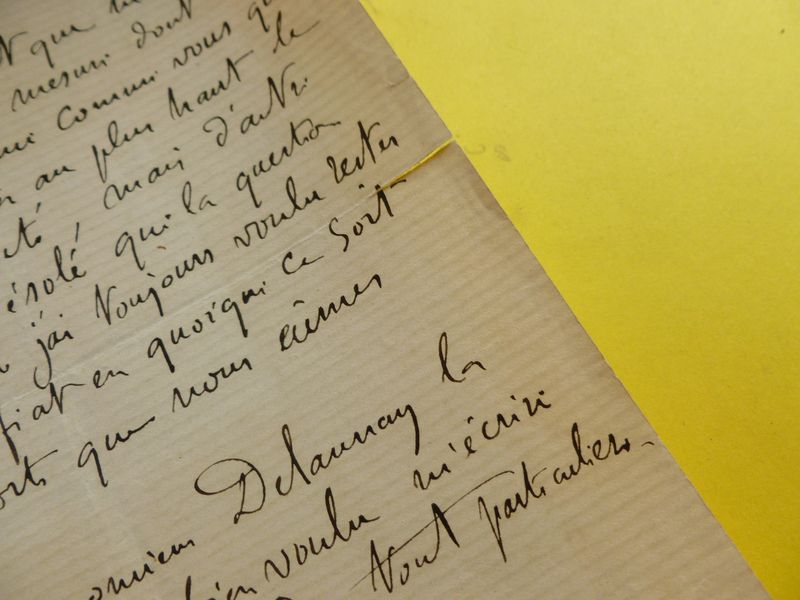 que
mesure dont
comme vous
au plus haut le
mais d'autre
désolé que la question
j'ai toujours voulu rester
en quoique ce soit
que nous eûmes
Monsieur Delaunay la
bien voulu m'écrire
tout particulier.